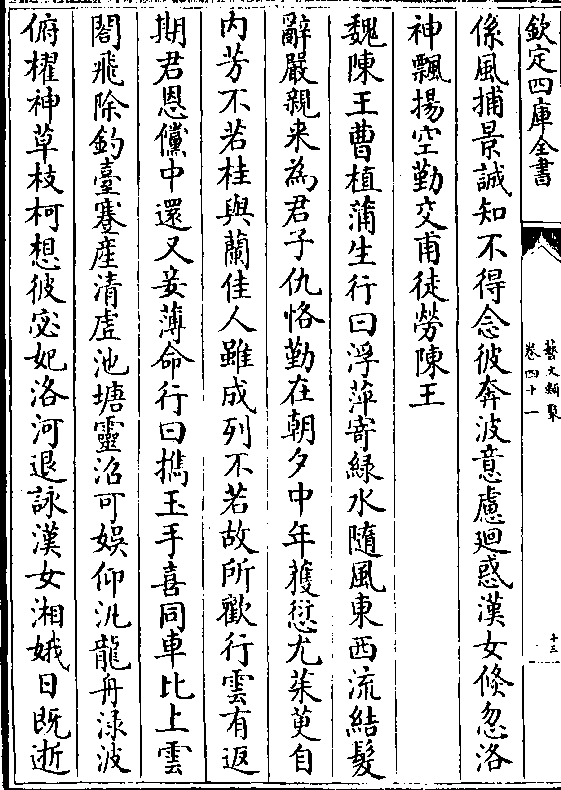 欽定四庫全書
藝文類聚
卷四十一
十三
係風捕景誠知不得念彼奔波意慮廻惑漢女倐忽洛
神飄揚空勤交甫徒勞陳王
魏陳王曹植蒲生行曰浮萍寄綠水隨風東西流結髮
辭嚴親来為君子仇恪勤在朝夕中年獲愆尤茱萸自
内芳不若桂與蘭佳人雖成列不若故所歡行雲有返
期君恩儻中還又妾薄命行曰攜玉手喜同車比上雲
閣飛除釣臺蹇産清虛池塘靈沼可娛仰汎龍舟淥波
俯櫂神草枝柯想彼宓妃洛河退詠漢女湘娥日既逝